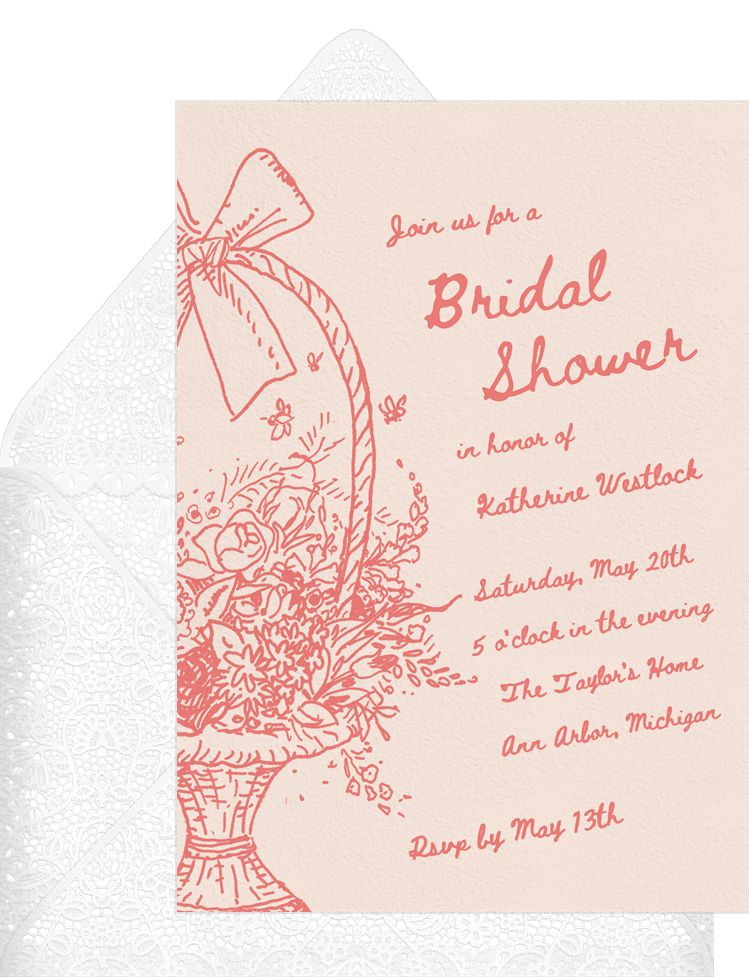 Join us for a
Bridal
Shower
in honor of
Katherine Westlock
Saturday, May 20th
5 o'clock in the evening
The Taylor's Home
Ann Arbor, Michigan
Rsvp by May 13th